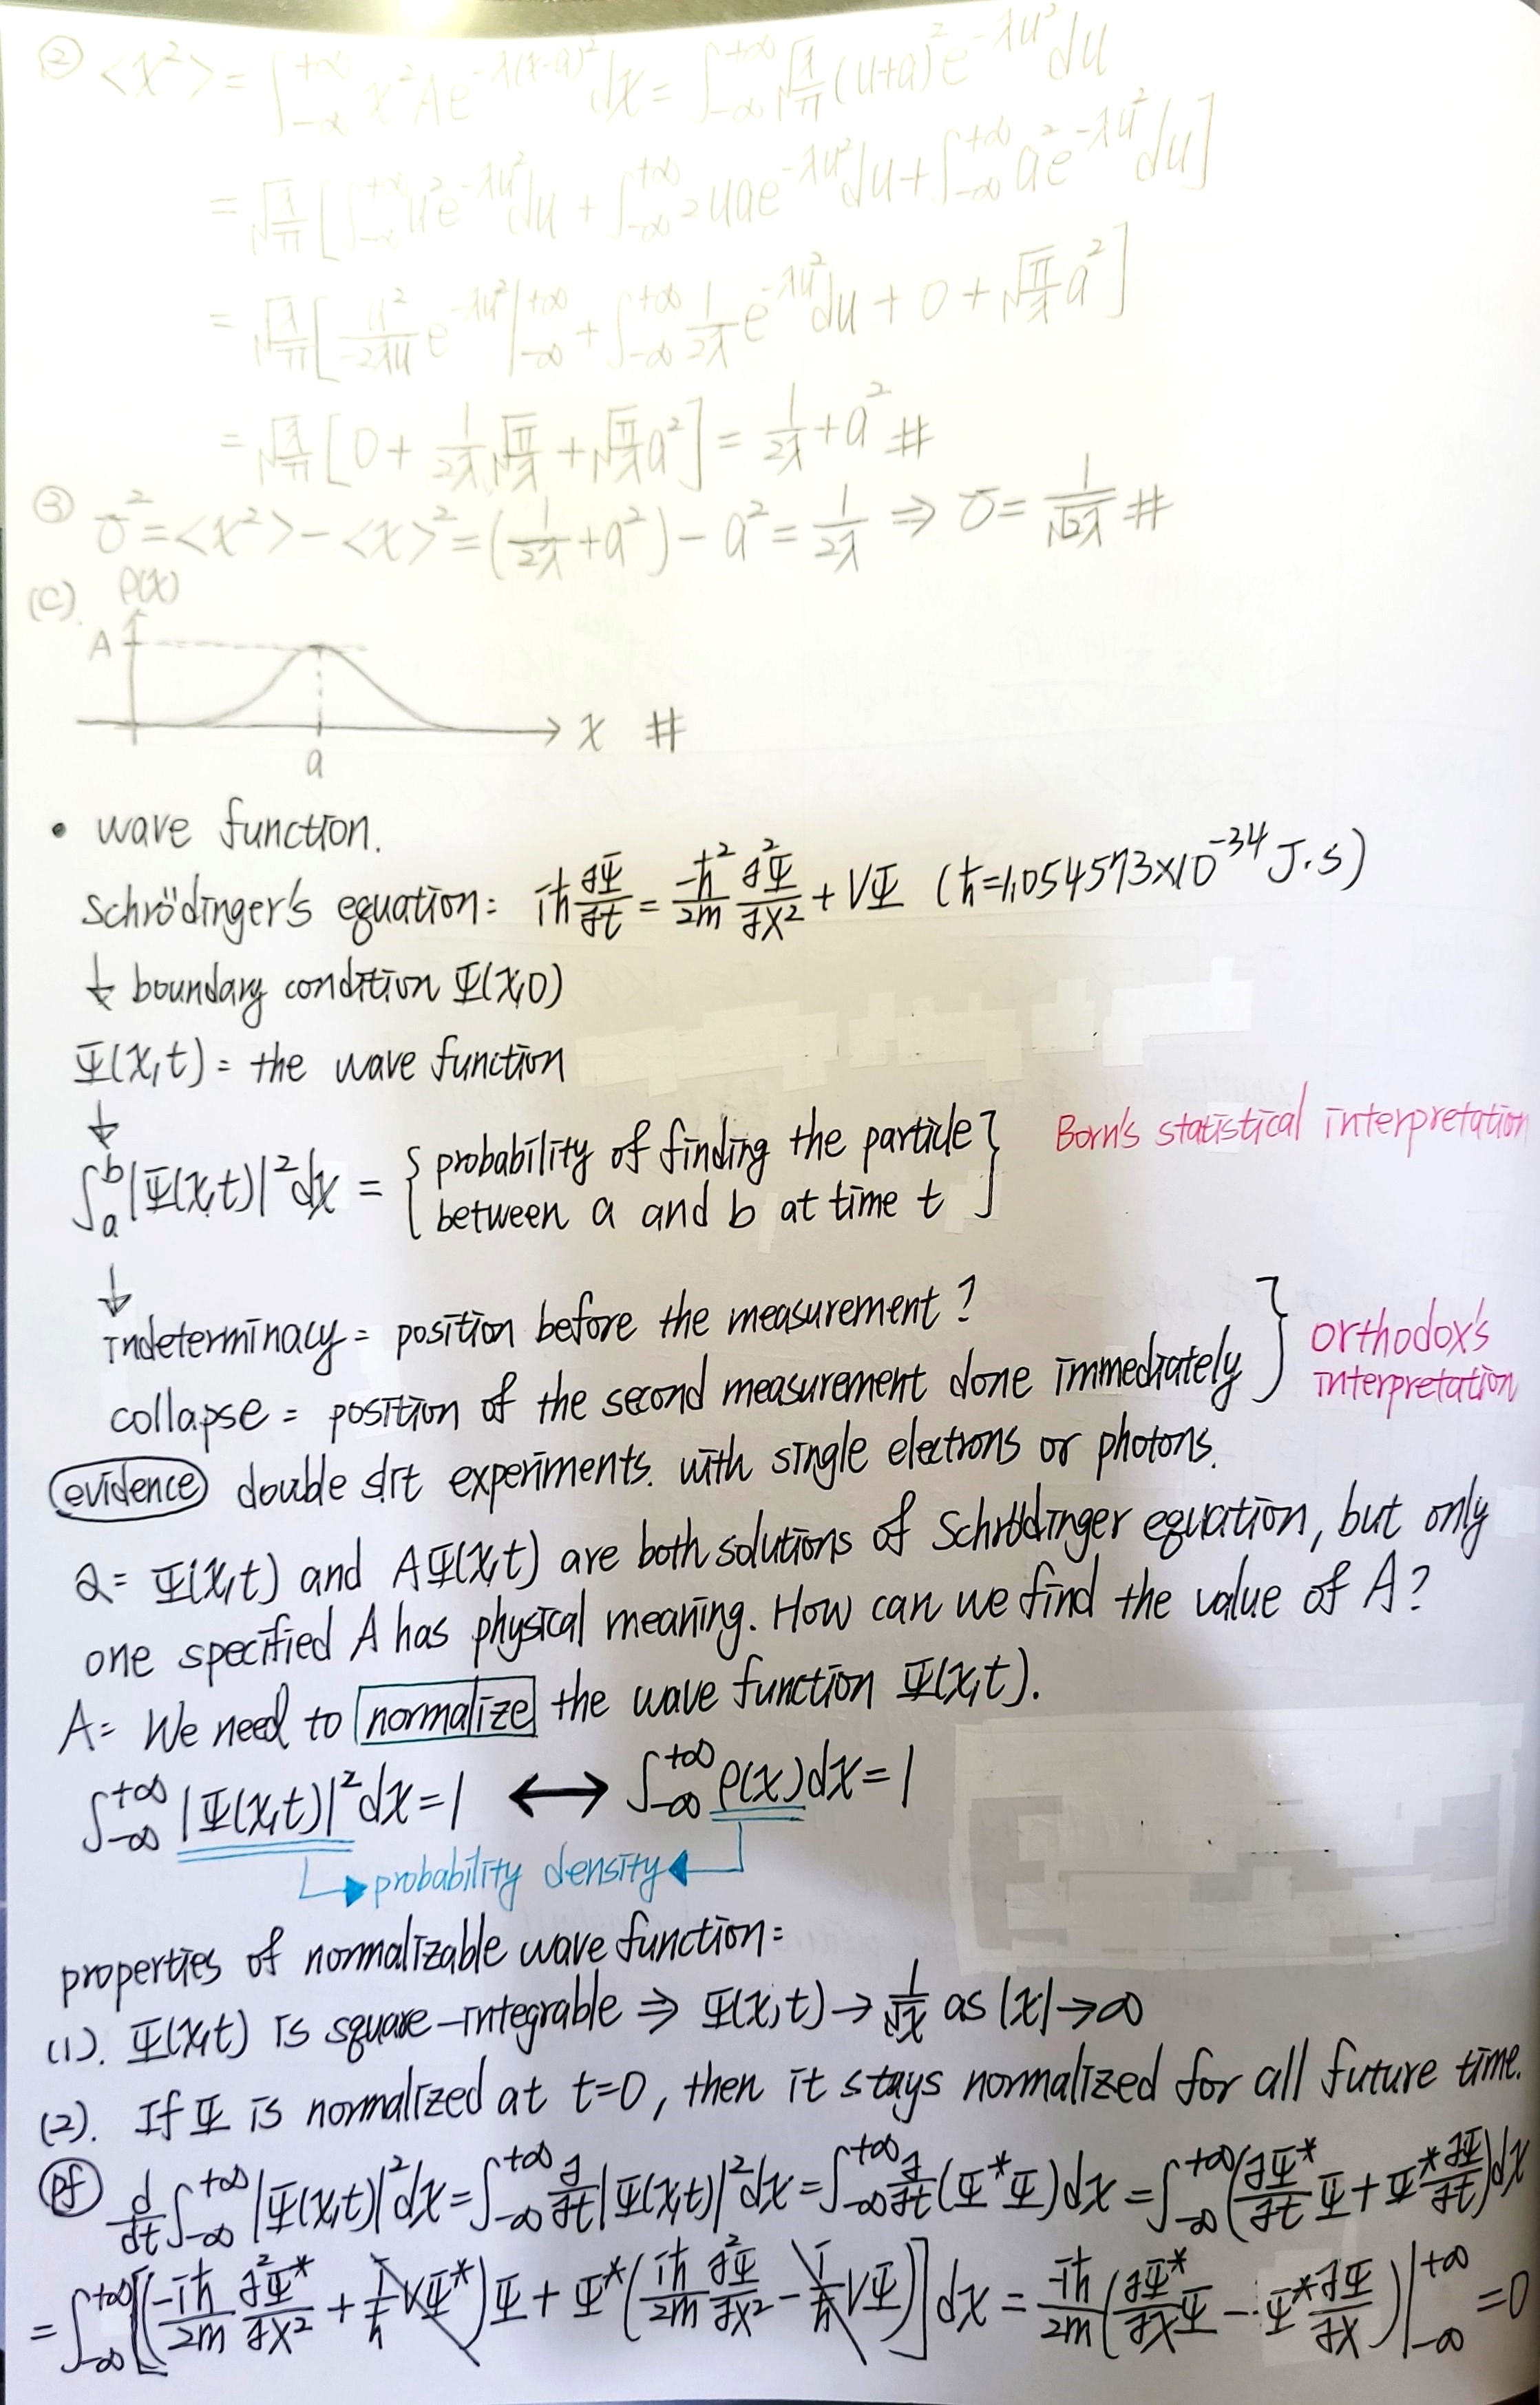 ② <x²> = ∫_{-∞}^{+∞} x²Ae^{-λ(x-a)²}dx = ∫_{-∞}^{+∞} √(λ/π) (u+a)²e^{-λu²}du
= √(λ/π) [∫_{-∞}^{+∞} u²e^{-λu²}du + ∫_{-∞}^{+∞} 2uae^{-λu²}du + ∫_{-∞}^{+∞} a²e^{-λu²}du]
= √(λ/π) [u²/(-2λu) e^{-λu²}|_{-∞}^{+∞} + ∫_{-∞}^{+∞} 1/(2λ) e^{-λu²}du + 0 + √(π/λ) a²]
= √(λ/π) [0 + 1/(2λ) √(π/λ) + √(π/λ) a²] = 1/(2λ) + a² #
③ σ² = <x²> - <x>² = (1/(2λ) + a²) - a² = 1/(2λ) ⇒ σ = 1/√(2λ) #
(c). ρ(x)
A
x #
a
• wave function.
Schrödinger's equation: iħ ∂Ψ/∂t = -ħ²/2m ∂²Ψ/∂x² + VΨ (ħ=1.054573×10^{-34} J·s)
↓ boundary condition Ψ(x,0)
Ψ(x,t) = the wave function
↓
∫_a^b |Ψ(x,t)|²dx = { probability of finding the particle } Born's statistical interpretation
between a and b at time t
↓
indeterminacy = position before the measurement?
collapse = position of the second measurement done immediately } orthodox's interpretation
evidence double slit experiments. with single electrons or photons.
Q= Ψ(x,t) and AΨ(x,t) are both solutions of Schrödinger equation, but only
one specified A has physical meaning. How can we find the value of A?
A= We need to normalize the wave function Ψ(x,t).
∫_{-∞}^{+∞} |Ψ(x,t)|²dx = 1 ↔ ∫_{-∞}^{+∞} ρ(x)dx = 1
probability density
properties of normalizable wave function=
(1). Ψ(x,t) is square-integrable ⇒ Ψ(x,t) → 1/√x as |x|→∞
(2). If Ψ is normalized at t=0, then it stays normalized for all future time.
pf d/dt ∫_{-∞}^{+∞} |Ψ(x,t)|²dx = ∫_{-∞}^{+∞} ∂/∂t |Ψ(x,t)|²dx = ∫_{-∞}^{+∞} ∂/∂t (Ψ*Ψ)dx = ∫_{-∞}^{+∞} (∂Ψ*/∂t Ψ + Ψ* ∂Ψ/∂t)dx
= ∫_{-∞}^{+∞} [(-iħ/2m ∂²Ψ*/∂x² + i/ħ VΨ*)Ψ + Ψ*(iħ/2m ∂²Ψ/∂x² - i/ħ VΨ)]dx = -iħ/2m (∂Ψ*/∂x Ψ - Ψ* ∂Ψ/∂x)|_{-∞}^{+∞} = 0